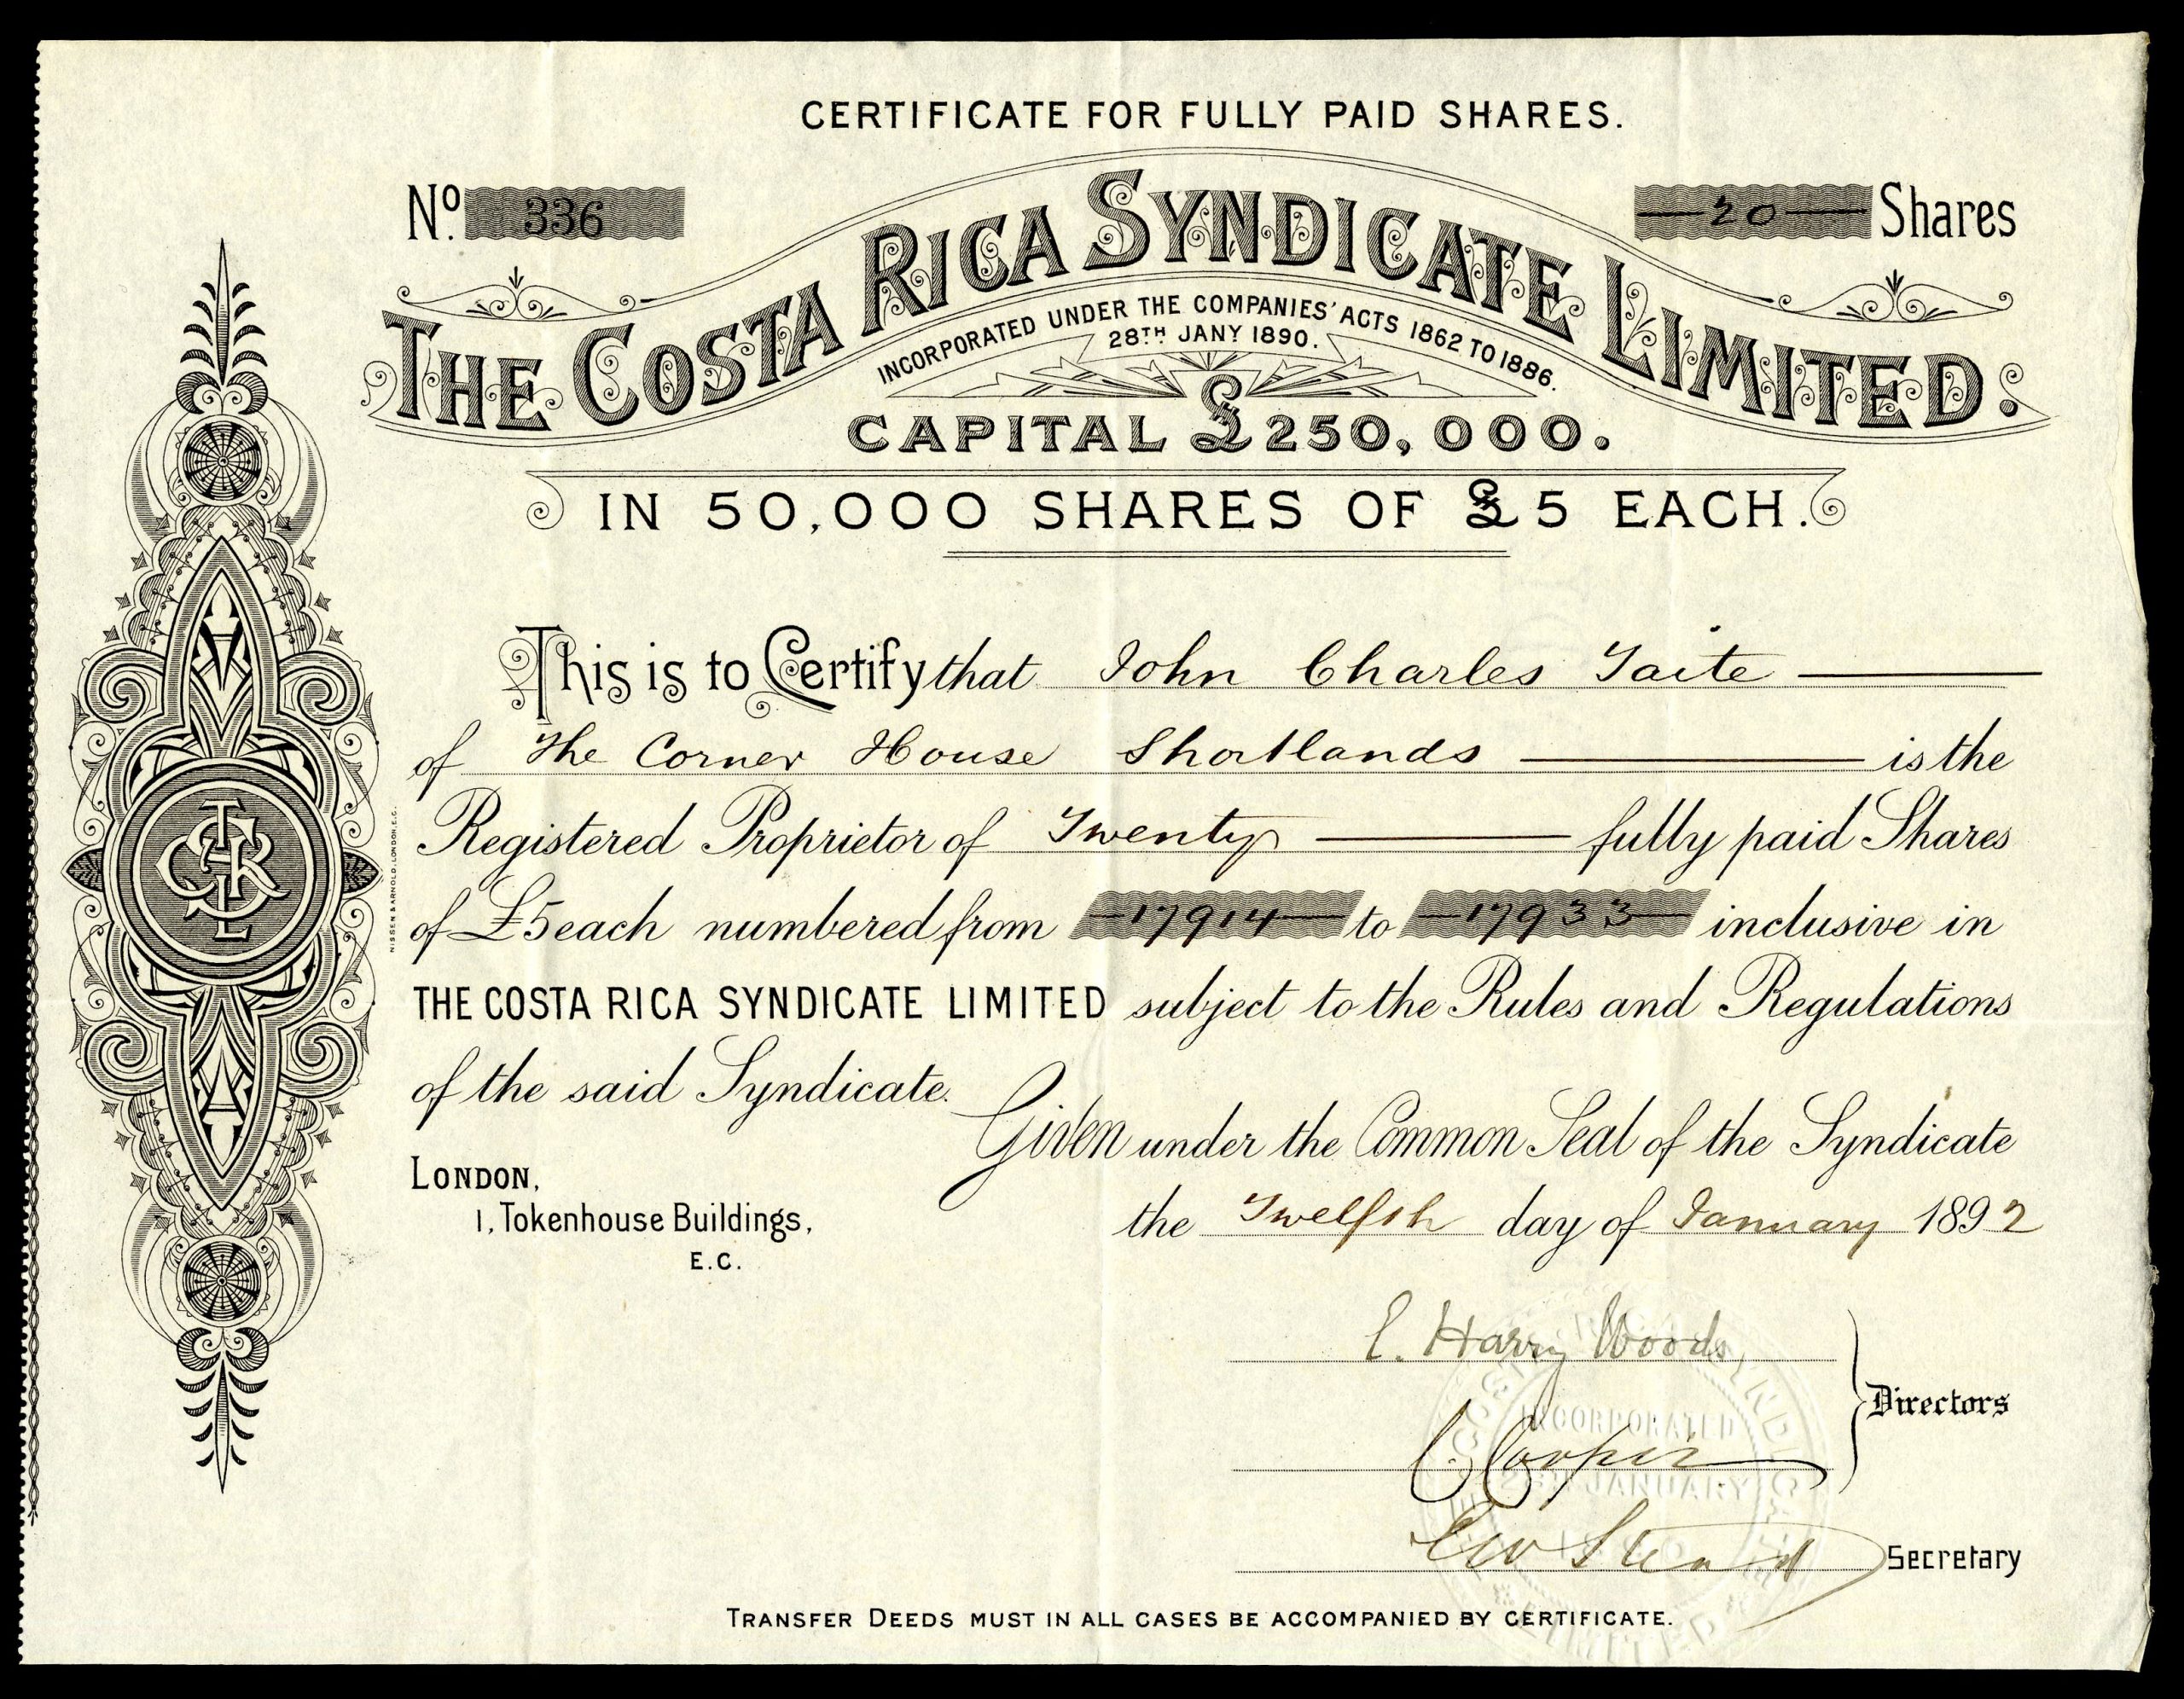 CERTIFICATE FOR FULLY PAID SHARES.
No. 336
20 Shares
THE COSTA RICA SYNDICATE LIMITED.
INCORPORATED UNDER THE COMPANIES' ACTS 1862 TO 1886.
28TH JANY 1890.
CAPITAL £250,000.
IN 50,000 SHARES OF £5 EACH.
This is to Certify that John Charles Taite
of The Corner House Shortlands is the
Registered Proprietor of Twenty fully paid Shares
of £5 each numbered from 17914 to 17933 inclusive in
THE COSTA RICA SYNDICATE LIMITED subject to the Rules and Regulations
of the said Syndicate.
Given under the Common Seal of the Syndicate
the Twelfth day of January 1892
LONDON,
1, Tokenhouse Buildings,
E.C.
E. Harry Woods
C Cooper
Directors
Geo Secretary
TRANSFER DEEDS MUST IN ALL CASES BE ACCOMPANIED BY CERTIFICATE.
NISSEN & ARNOLD, LONDON, E.C.
INCORPORATED
JANUARY
LIMITED